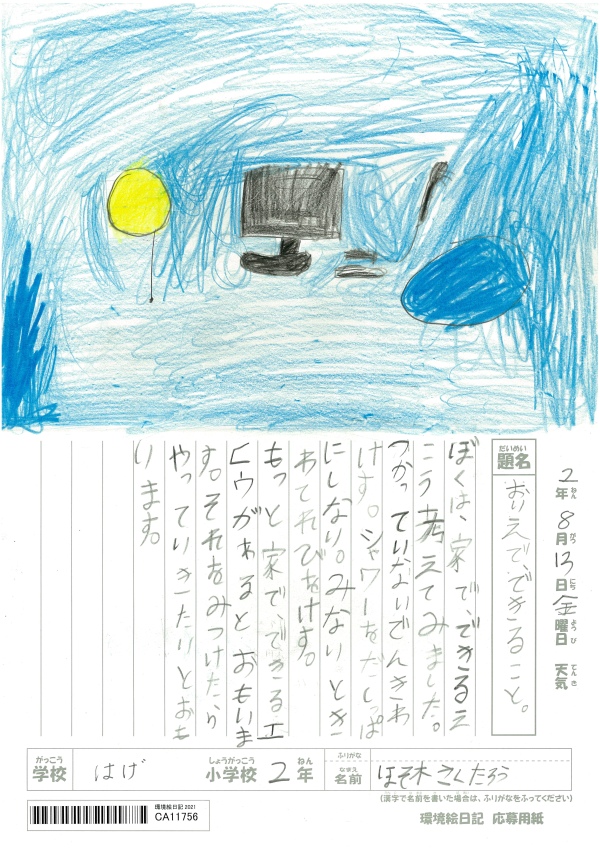 2年 8月 13日 金曜日 天気
ねん がつ にち ようび てんき
だいめい
題名
おいえで、できること。
ぼくは、家で、できるえ
こう考えてみました。
つかっていないでんきわ
けす。シャワーをだしっぱ
にしない。みないとき
わてれびをけす。
もっと家で、できるエ
コウがあるとおもいま
す。それをみつけたら
やっていきたいとおも
います。
がっこう しょうがっこう ねん ふりがな
学校 はげ 小学校 2年
なまえ
名前 ほそ木 さくたろう
(漢字で名前を書いた場合は、ふりがなをふってください)
環境絵日記 2021
CA11756
環境絵日記 応募用紙